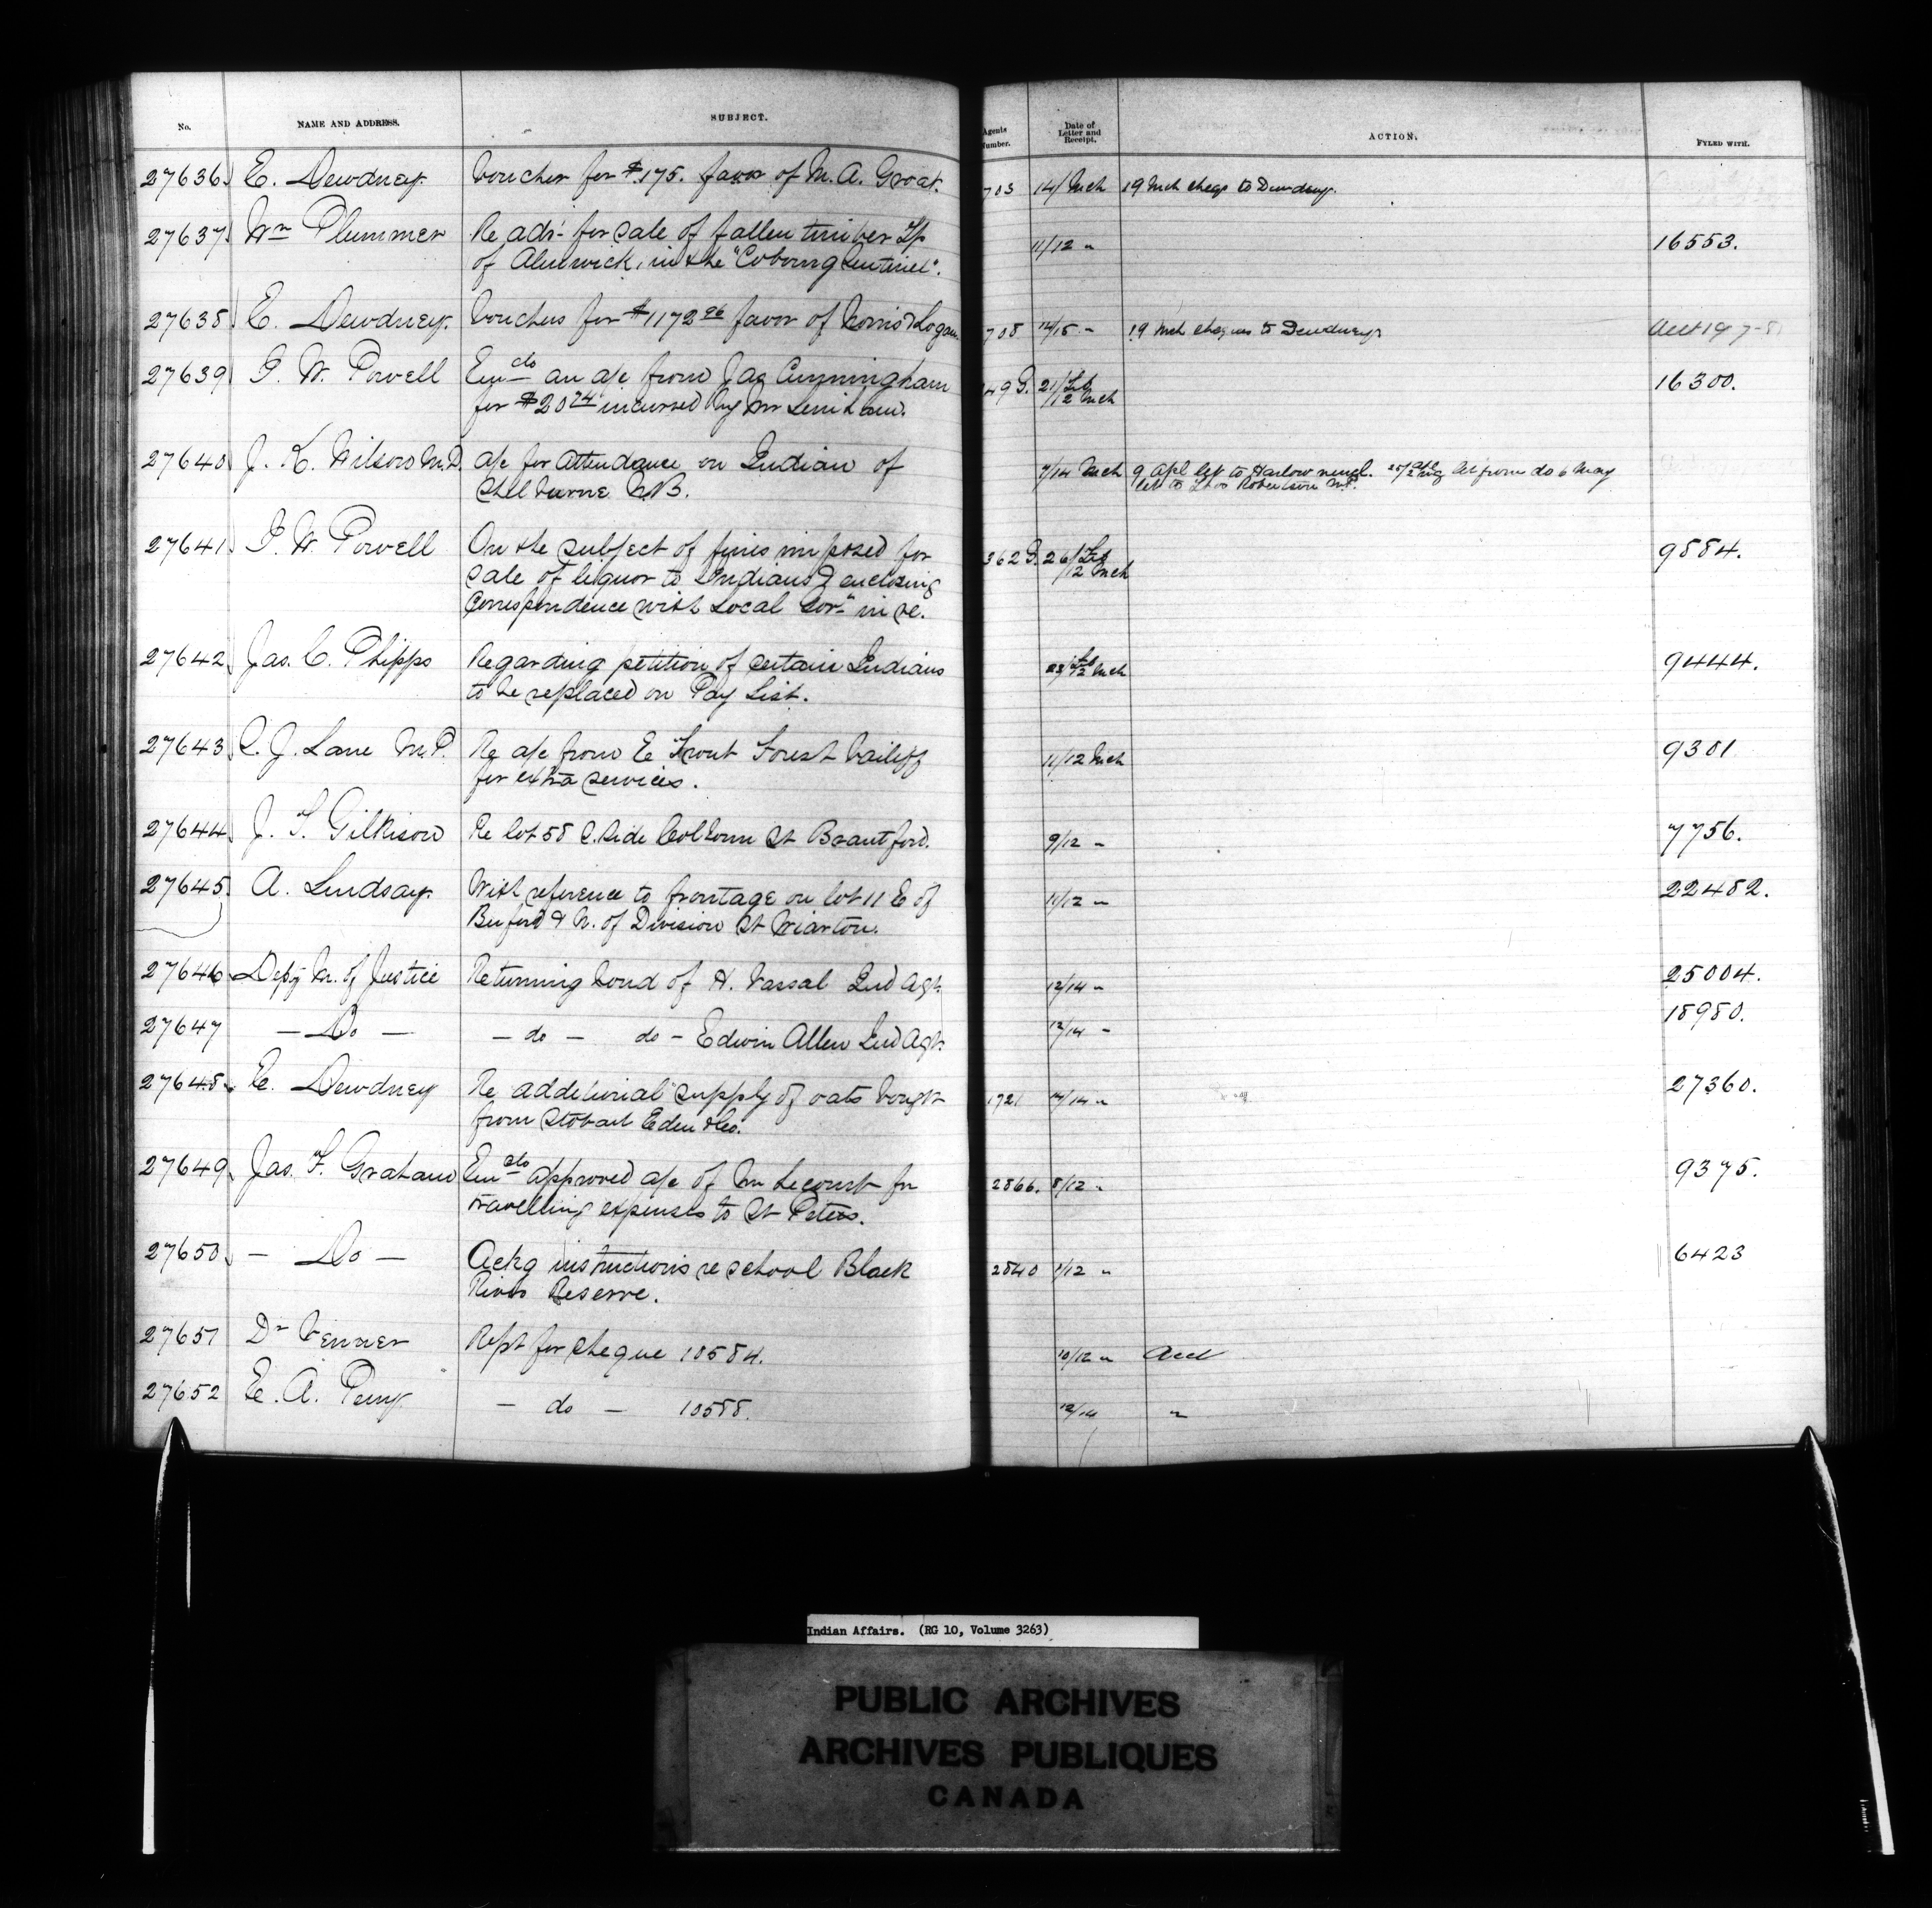 No. NAME AND ADDRESS. SUBJECT. Agents Number. Date of Letter and Receipt. ACTION. FYLED WITH.
27636 E. Dewdney. Voucher for $175. favor of M. A. Groat. 703 14/ Mch 19 Mch cheqs to Dewdney.
27637 Wm Plummer Re advt for sale of fallen timber Tp 11/12 " 16553.
of Alnwick, in the "Cobourg Sentinel".
27638 E. Dewdney. Vouchers for $1172 96 favor of Norris & Logan 708 14/15 " 19 Mch cheques to Dewdney
27639 I. W. Powell Encdo an a/c from Jas Cunningham 49 G. 21/Feb 16300.
for $20 74 incurred by Mr Lenihan. /12 Mch
27640 J. K. Wilson M.D. a/c for attendance on Indian of 7/14 Mch 9 Apl let to Harlow encl. let from do 6 May
Shelburne N.B. let to Thos Robertson M.P.
27641 I. W. Powell On the subject of fines imposed for 362 G. 26/Feb 9884.
sale of liquor to Indians & enclosing /12 Mch
correspondence with Local Govt in re.
27642 Jas. C. Phipps Regarding petition of certain Indians /12 Mch 9444.
to be replaced on Pay List.
27643 C. J. Lane M.P. Re a/c from E Trout Forest bailiff 11/12 Mch 9301
for extra services.
27644 J. T. Gilkison Re lot 58 S. Side Colborn St Brantford. 9/12 " 7756.
27645 A. Lindsay. With reference to frontage on lot 11 E of 11/12 " 22482.
Berford & N. of Division St Wiarton.
27646 Depy M. of Justice Returning bond of H. Vassal Ind Agt. 12/14 " 25004.
27647 — Do — — do — do — Edwin Allen Ind Agt. 12/14 " 18980.
27648 E. Dewdney Re additional supply of oats bought 1721 /14 " 27360.
from Stobart Eden & Co.
27649 Jas. F. Graham Encdo approved a/c of Mr Lecourt for 2866. 8/12 " 9375.
travelling expenses to St Peters.
27650 — Do — Ackg instructions re school Black 2840 1/12 " 6423
River Reserve.
27651 Dr Venner Rept for cheque 10584. 10/12 " Acct
27652 E. A. Perry — do — 10588. 12/14 "
Indian Affairs. (RG 10, Volume 3263)
PUBLIC ARCHIVES
ARCHIVES PUBLIQUES
CANADA